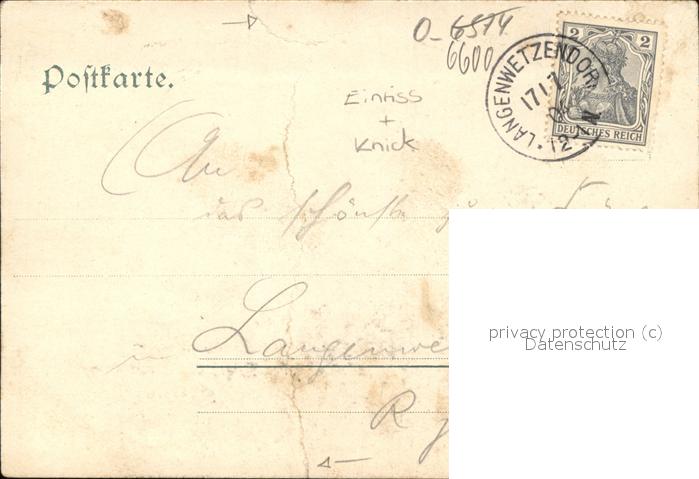 O-6574
6600
2 2
DEUTSCHES REICH
LANGENWETZENDORF
17.1.
12-1N
Postkarte.
Einriss
+
Knick
An
das schönste
in Langenwe
R
privacy protection (c)
Datenschutz